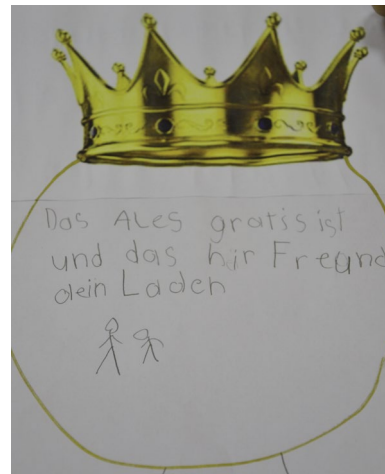 Das ALes gratis ist
und das hir Freund
dein Laden